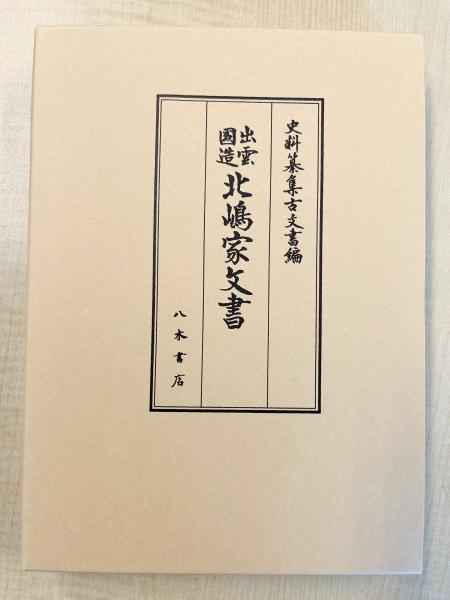 史料纂集古文書編
出雲
國造
北嶋家文書
八木書店